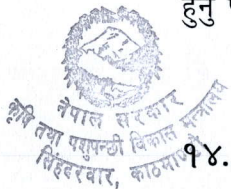 हुनु
नेपाल सरकार
कृषि तथा पशुपन्छी विकास मन्त्रालय
सिंहदरबार, काठमाण्डौ
१४.